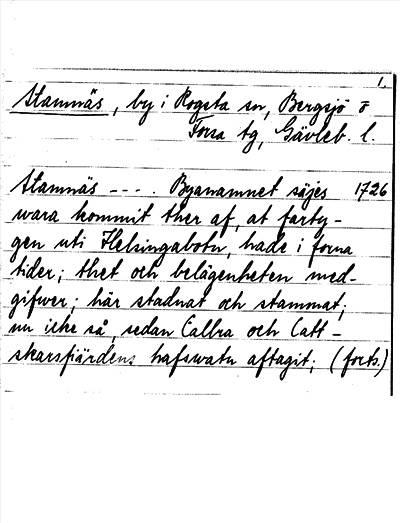 1.
Stamnäs, by i Rogsta sn, Bergsjö o
Forsa tg, Gävleb. l.
Stamnäs ---. Byanamnet säjes 1726
wara kommit ther af, at farty-
gen uti Helsingabotn, hade i forna
tider; thet och belägenheten med-
gifwer; här stadnat och stammat;
nu icke så, sedan Callra och Catt-
skarsfiärdens hafswatn aftagit; (forts.)